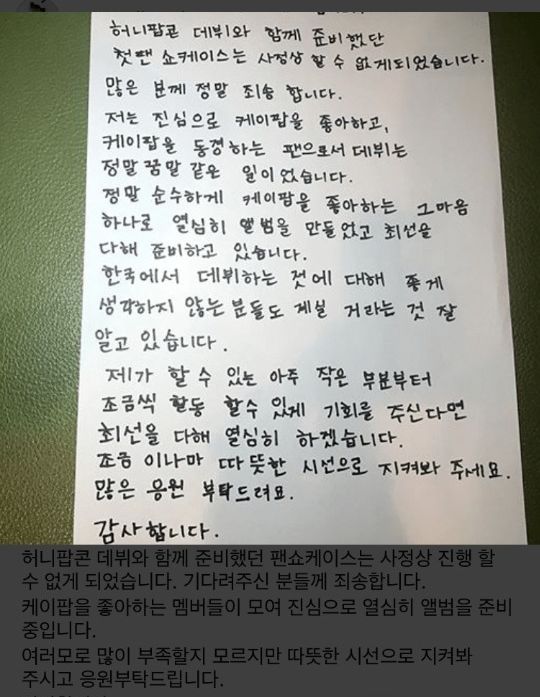 허니팝콘 데뷔와 함께 준비했단
첫팬 쇼케이스는 사정상 할 수 없게되었습니다.
많은 분께 정말 죄송 합니다.
저는 진심으로 케이팝을 좋아하고,
케이팝을 동경하는 팬으로서 데뷔는
정말 꿈만 같은 일이었습니다.
정말 순수하게 케이팝을 좋아하는 그마음
하나로 열심히 앨범을 만들었고 최선을
다해 준비하고 있습니다.
한국에서 데뷔하는 것에 대해 좋게
생각하지 않는 분들도 계실 거라는 것 잘
알고 있습니다.
제가 할 수 있는 아주 작은 부분부터
조금씩 활동 할수 있게 기회를 주신다면
최선을 다해 열심히 하겠습니다.
조금 이나마 따뜻한 시선으로 지켜봐 주세요.
많은 응원 부탁드려요.
감사합니다.
허니팝콘 데뷔와 함께 준비했던 팬쇼케이스는 사정상 진행 할
수 없게 되었습니다. 기다려주신 분들께 죄송합니다.
케이팝을 좋아하는 멤버들이 모여 진심으로 열심히 앨범을 준비
중입니다.
여러모로 많이 부족할지 모르지만 따뜻한 시선으로 지켜봐
주시고 응원부탁드립니다.